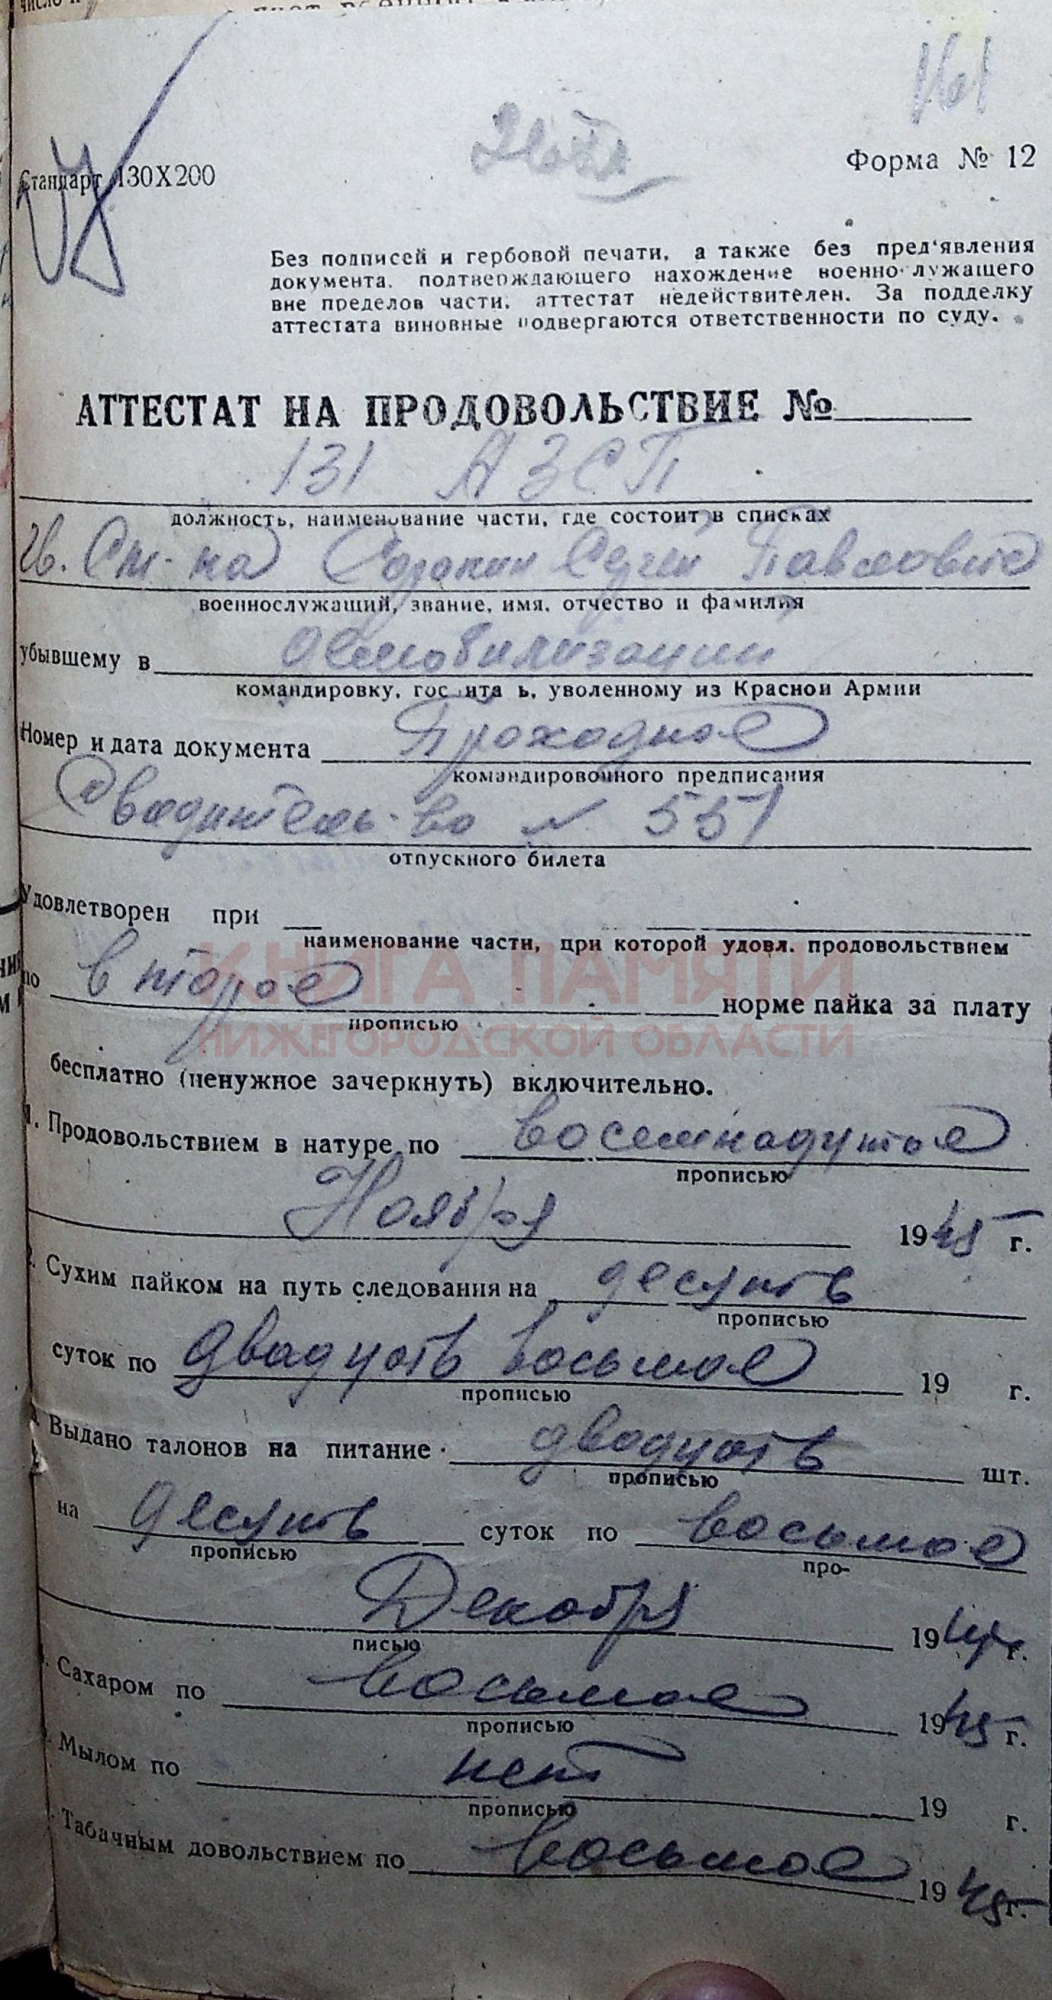 161
Стандарт 130Х200
Форма № 12
Без подписей и гербовой печати, а также без пред'явления
документа, подтверждающего нахождение военнослужащего
вне пределов части, аттестат недействителен. За подделку
аттестата виновные подвергаются ответственности по суду.
АТТЕСТАТ НА ПРОДОВОЛЬСТВИЕ №
131 АЗСП
должность, наименование части, где состоит в списках
Гв. Ст-на Сергей Павлович
военнослужащий, звание, имя, отчество и фамилия
убывшему в демобилизации
командировку, госпиталь, уволенному из Красной Армии
Номер и дата документа Проходное
командировочного предписания
Свидетель-во № 551
отпускного билета
Удовлетворен при
наименование части, при которой удовл. продовольствием
КНИГА ПАМЯТИ
по второе норме пайка за плату
прописью
НИЖЕГОРОДСКОЙ ОБЛАСТИ
бесплатно (ненужное зачеркнуть) включительно.
1. Продовольствием в натуре по восемнадцатое
прописью
Ноября 1945 г.
2. Сухим пайком на путь следования на десять
прописью
суток по двадцать восьмое 19 г.
прописью
3. Выдано талонов на питание двадцать шт.
прописью
на десять суток по восьмое
прописью про-
Декабря 194 г.
писью
Сахаром по восьмое 1945 г.
прописью
Мылом по нет 19 г.
прописью
Табачным довольствием по восьмое 1945 г.